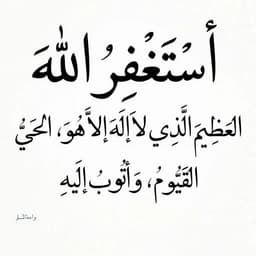 أَسْتَغْفِرُ اللهَ
العَظِيمَ الَّذِي لاَ إِلَهَ إِلاَّ هُوَ، الحَيُّ
القَيُّومُ، وَأَتُوبُ إِلَيهِ